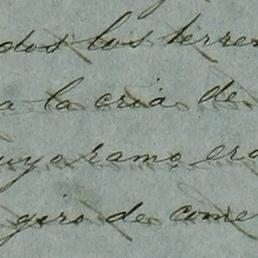 dos los terre
a la cria de
uyo ramo, era
giro de come